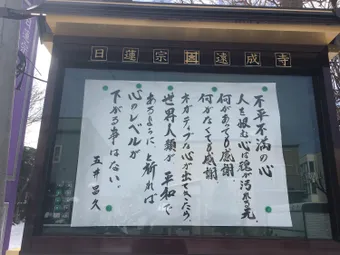 日蓮宗国遠成寺
不平不満の心
人を恨む心は魂が汚れる元。
何があっても感謝、
何がなくても感謝。
ネガティブな心が出てきたら、
世界人類が平和で
ありますように、と祈れば
心のレベルが
下がる事はない。
五井昌久